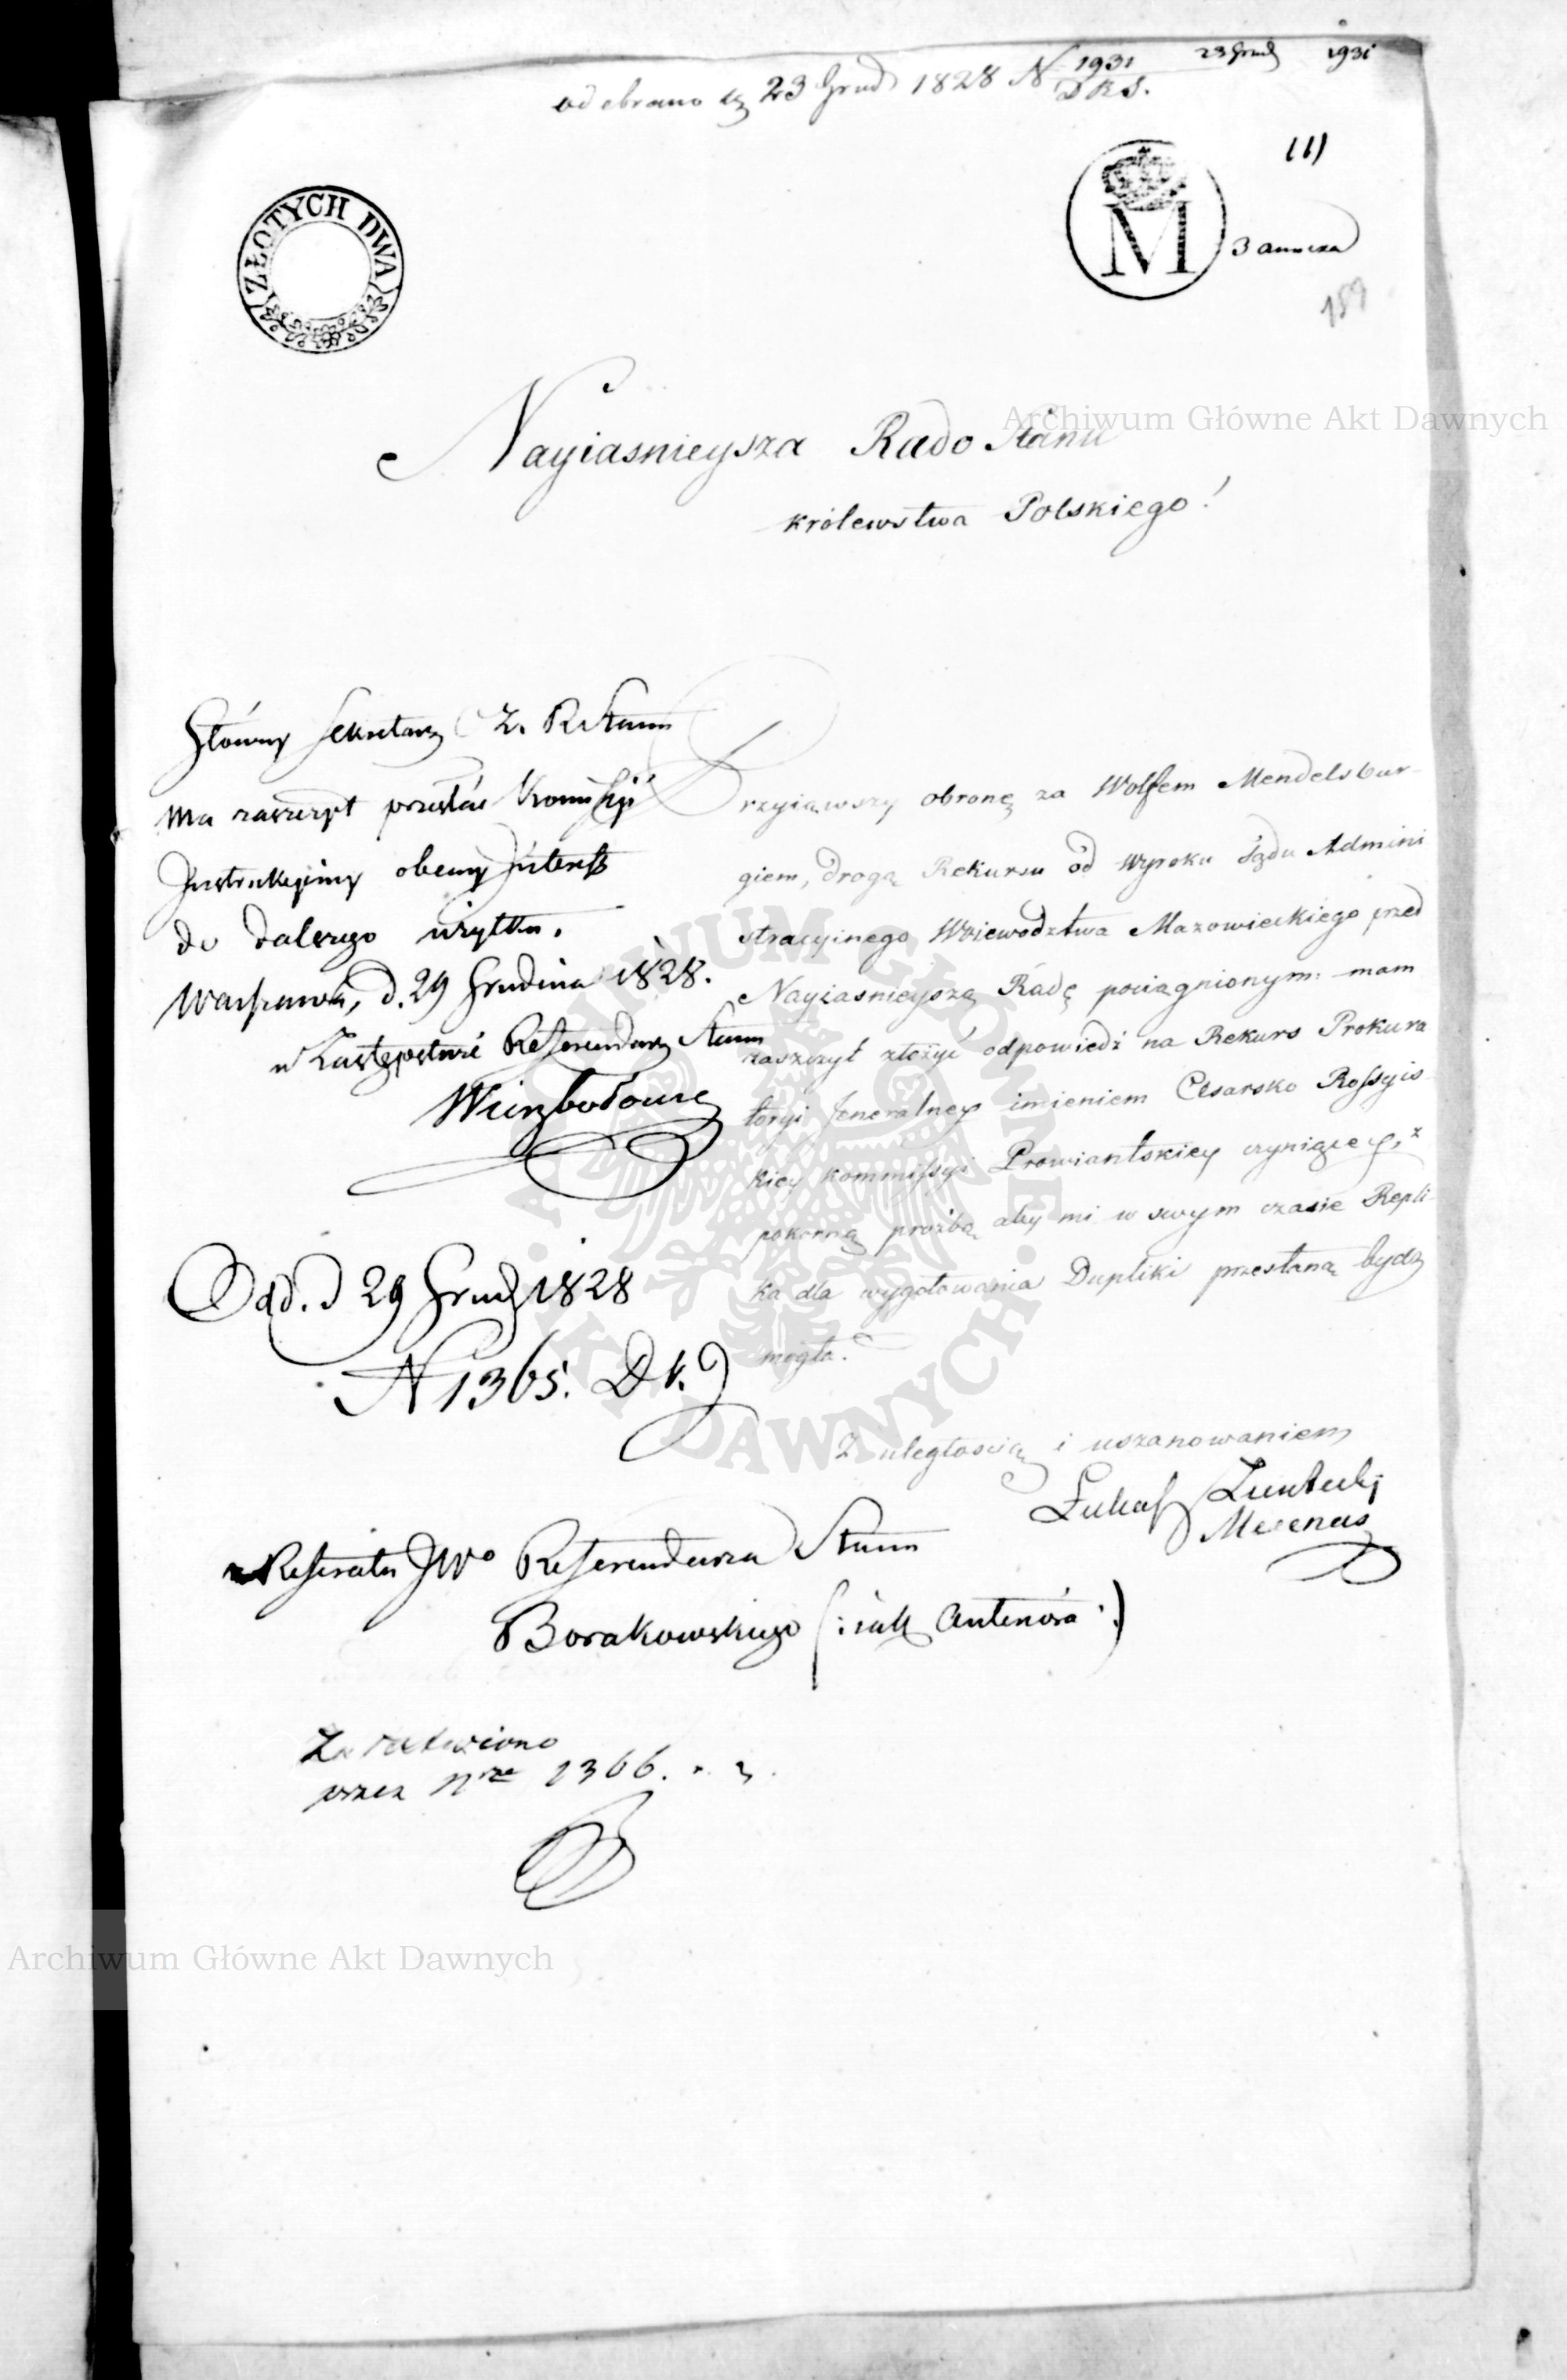 odebrano d. 23 Grud 1828 N 1931
D R S.
23 Grud 1931
(1)
ZŁOTYCH DWA
M
3 annexa
159
Archiwum Główne Akt Dawnych
Nayiasnieysza Rado Stanu
Królewstwa Polskiego!
Główny Sekretarz Z. R Stanu
Ma zaszczyt przesłać Kommissyi
Instrukcyiney obecny Interess
do dalszego użytku.
Warszawa, d. 29 Grudnia 1828.
w Zastępstwie Referendarz Stanu
Wierzbołowicz
Przyiąwszy obronę za Wolfem Mendelsbur-
giem, drogą Rekursu od Wyroku Sądu Admini
stracyinego Woiewodztwa Mazowieckiego przed
Nayiasnieyszą Radę pociągnionym: mam
zaszczyt złożyć odpowiedź na Rekurs Prokura
toryi Jeneralney imieniem Cesarsko Rossyis-
kiey Kommissyi Prowiantskiey czyniącey, z
pokorną proźbą aby mi w swym czasie Repli-
ka dla wygotowania Dupliki przesłaną bydz
mogła.
Odd. d 29 Grud 1828
N 1365. D K. J
Z uległością i uszanowaniem
Łukasz
Mecenas
Referatu JWo Referendarza Stanu
Borakowskiego (: iak Antenora :)
Załatwiono
przez Nr 1366.
Archiwum Główne Akt Dawnych
ARCHIWUM GŁÓWNE · AKT DAWNYCH ·